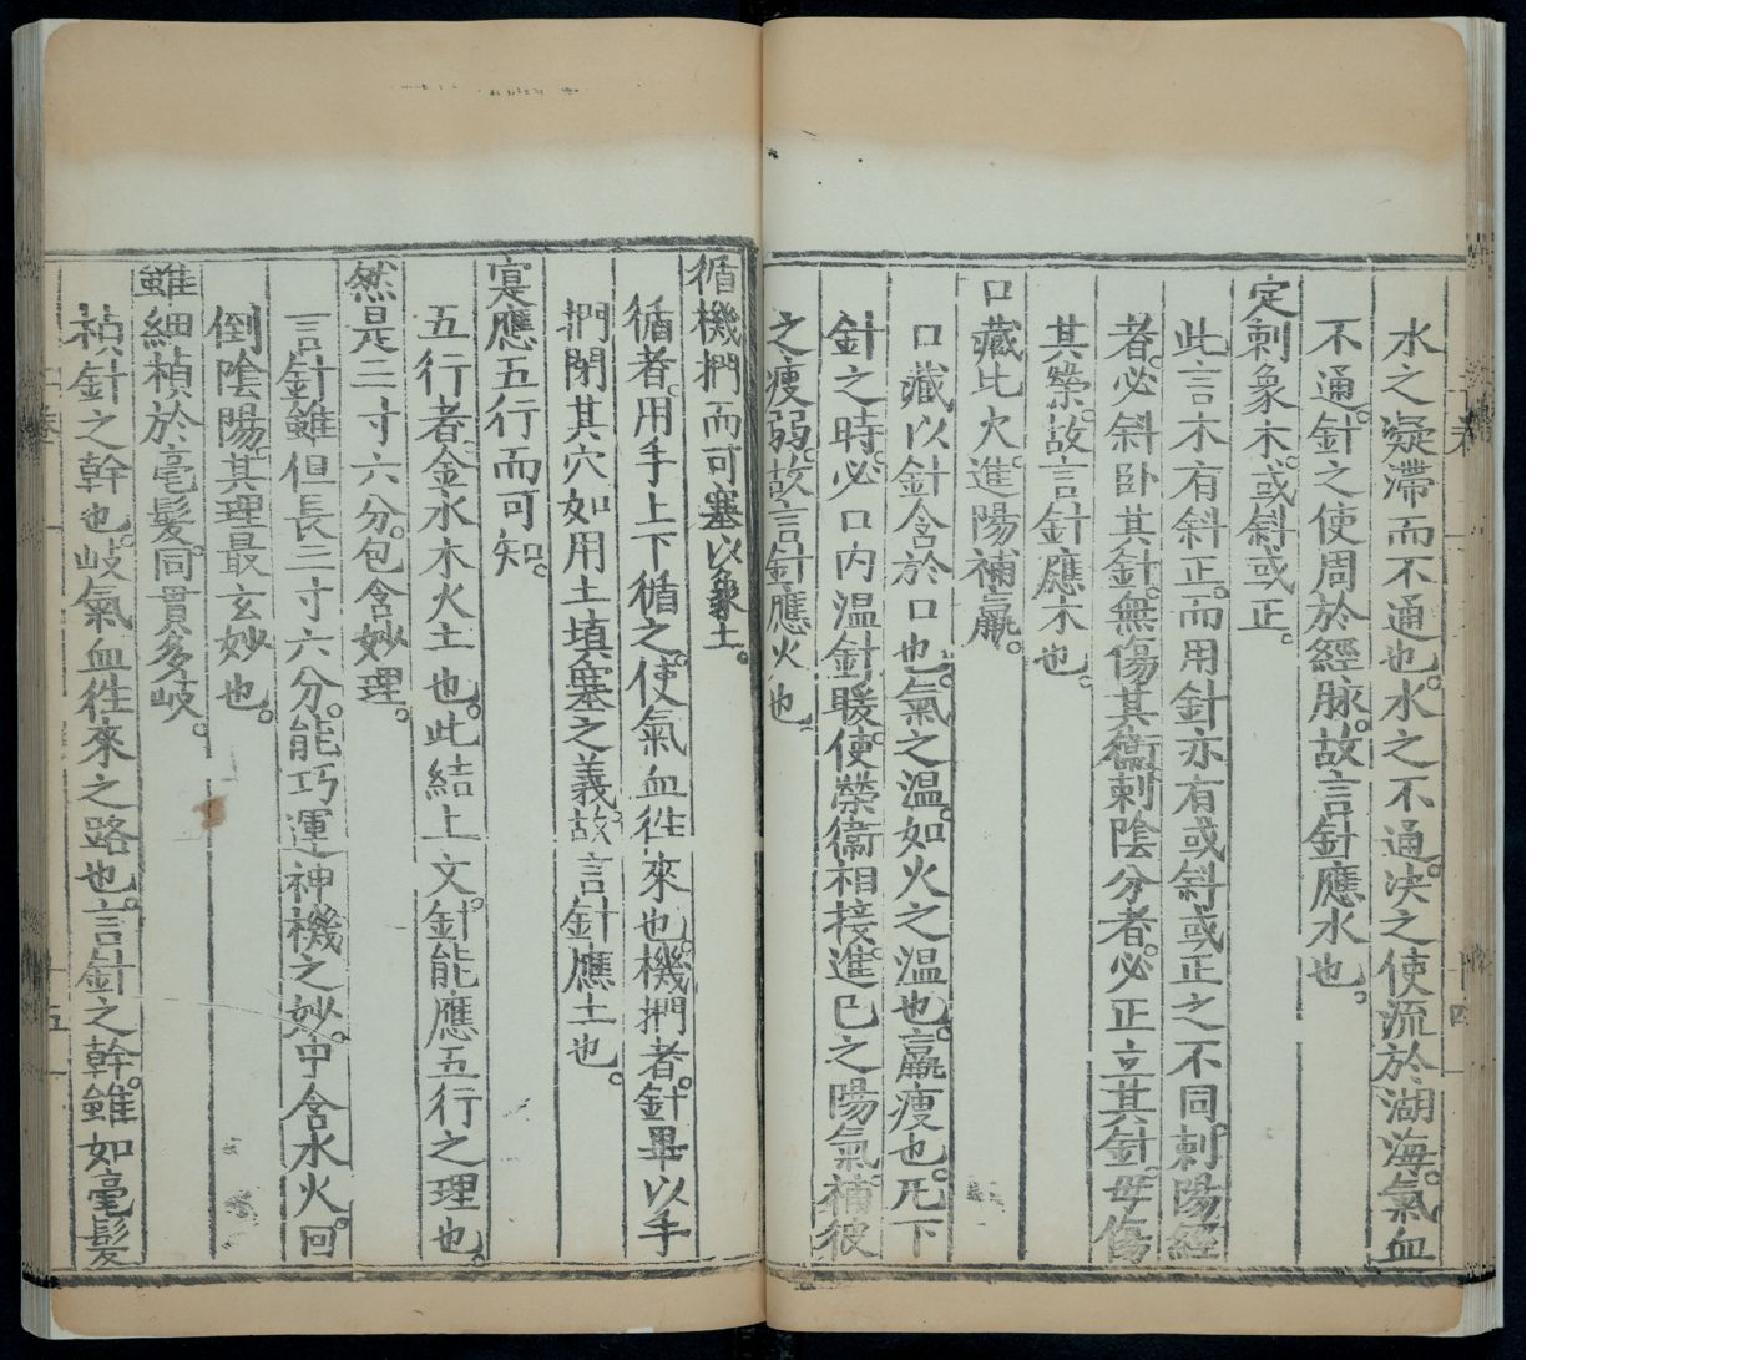 水之凝滯而不通也。水之不通。決之使流於湖海。氣血
不通。針之使周於經脉。故言針應水也。
定刺象木。或斜或正。
此言木有斜正。而用針亦有或斜或正之不同。刺陽經
者。必斜卧其針。無傷其衞。刺陰分者。必正立其針。毋傷
其榮。故言針應木也。
口藏比火。進陽補羸。
口藏以針含於口也。氣之温。如火之温也。羸瘦也。凡下
針之時。必口内温針暖。使榮衞相接。進已之陽氣。補彼
之瘦弱。故言針應火也。
十四
循機捫而可塞以象土。
循者。用手上下循之。使氣血徃來也。機捫者。針畢以手
捫閉其穴。如用土填塞之義。故言針應土也。
寔應五行而可知。
五行者。金水木火土也。此結上文。針能應五行之理也。
然是三寸六分。包含妙理。
言針雖但長三寸六分。能巧運神機之妙。中含水火。回
倒陰陽。其理最玄妙也。
雖細楨於毫髮。同貫多岐。
楨。針之幹也。岐。氣血徃來之路也。言針之幹。雖如毫髮
卷一
十五